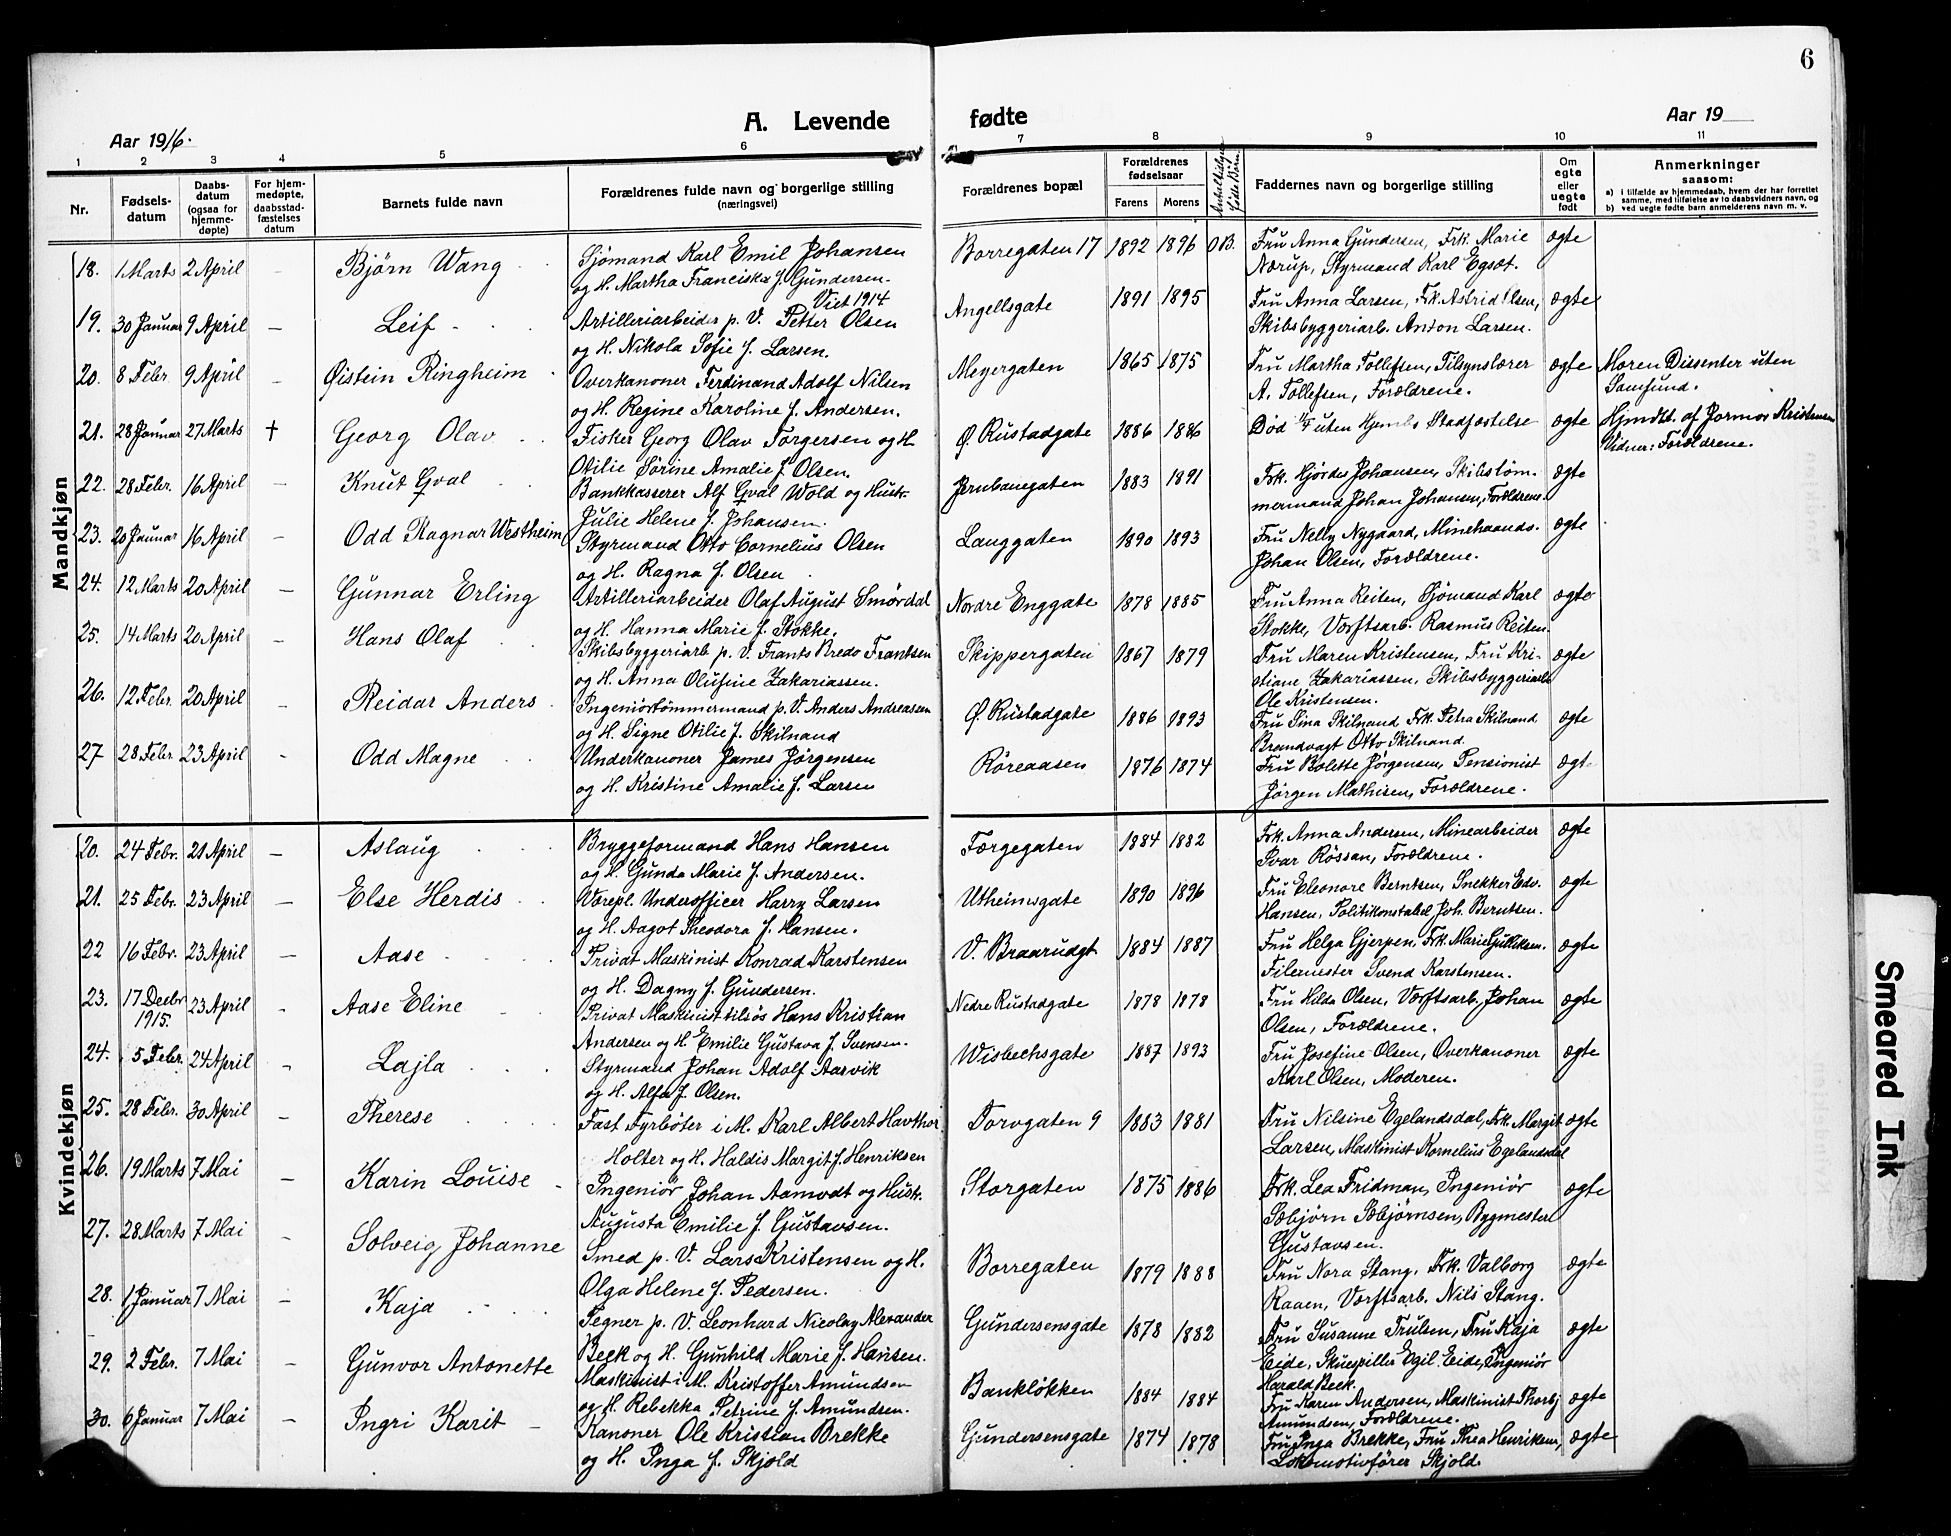 6
Aar 1916.
A. Levende fødte
Aar 19
1 2 3 4 5 6 7 8 9 10 11
Nr.
Fødsels-datum
Daabs-datum (ogsaa for hjemme-døpte)
For hjem-medøpte, daabsstad-fæstelses datum
Barnets fulde navn
Forældrenes fulde navn og borgerlige stilling (næringsvei)
Forældrenes bopæl
Forældrenes fødselsaar
Farens Morens
Faddernes navn og borgerlige stilling
Om egte eller uegte født
Anmerkninger saasom:
a) i tilfælde av hjemmedaab, hvem der har forrettet samme, med tilføielse av to daabsvidners navn, og
b) ved uegte fødte barn anmelderens navn m. v.
Mandkjøn
18. 1 Marts 2 April - Bjørn Wang Sjømand Karl Emil Johansen og H. Martha Franciska f. Gundersen. Viet 1914 Borregaten 17 1892 1896 O.B. Fru Anna Gundersen, Frk. Marie Nærup, Styrmand Karl Egsæt. ægte
19. 30 Januar 9 April - Leif Artilleriarbeider p. V. Petter Olsen og H. Nikola Sofie f. Larsen. Angellsgate 1891 1895 Fru Anna Larsen, Frk. Astrid Olsen, Skibsbyggeriarb. Anton Larsen. ægte
20. 8 Febr. 9 April - Øistein Ringheim Overkanoner Ferdinand Adolf Nilsen og H. Regine Karoline f. Andersen. Meyergaten 1865 1875 Fru Martha Tollefsen, Tilsynslærer A. Tollefsen, Forældrene. ægte Moren Dissenter uten Samfund.
21. 28 Januar 27 Marts † Georg Olav Fisker Georg Olav Torgersen og H. Otilie Sørine Amalie f. Olsen. Ø. Rustadgate 1886 1886 Død uten Hjemb. Stadfæstelse ægte Hjmdt. af Jormor Kristensen Vidner: Forældrene.
22. 28 Febr. 16 April - Knut Gval Bankkasserer Alf Gval Wold og Hustr. Julie Helene f. Johansen. Jernbanegaten 1883 1891 Frk. Hjørdis Johansen, Skibstøm-mermand Johan Johansen, Forældrene. ægte
23. 20 Januar 16 April - Odd Ragnar Westheim Styrmand Otto Cornelius Olsen og H. Ragna f. Olsen Langgaten 1890 1893 Fru Nelly Nygaard, Minehaands. Johan Olsen, Forældrene. ægte
24. 12 Marts 20 April - Gunnar Erling Artilleriarbeider Olaf August Smørdal og H. Hanna Marie f. Stokke. Nordre Enggate 1878 1885 Fru Anna Reiten, Sjømand Karl Stokke, Værftsarb. Rasmus Reiten. ægte
25. 14 Marts 20 April - Hans Olaf Skibsbyggeriarb p. V. Frants Bredo Frantsen og H. Anna Olufine Zakariassen. Skippergaten 1867 1879 Fru Maren Kristensen, Fru Kri-stiane Zakariassen, Skibsbyggeriarb Ole Kristensen. ægte
26. 12 Febr. 20 April - Reidar Anders Ingeniørtømmermand p. V. Anders Andreassen og H. Signe Otilie f. Skilnand Ø. Rustadgate 1886 1893 Fru Sina Skilnand Frk. Petra Skilnand Brandvagt Otto Skilnand. ægte
27 28 Febr. 23 April - Odd Magne Underkanoner James Jørgensen og H. Kristine Amalie f. Larsen Røreaasen 1876 1874 Fru Bolette Jørgensen, Pensionist Jørgen Mathisen, Forældrene. ægte
Kvindekjøn
20. 24 Febr. 21 April - Aslaug Bryggeformand Hans Hansen og H. Gunda Marie f. Andersen. Færgegaten 1884 1882 Frk. Anna Andersen, Minearbeider Ivar Røssan, Forældrene. ægte
21. 25 Febr. 23 April - Else Herdis Værepl. Underofficer Harry Larsen og H. Aagot Theodora f. Hansen. Utheimsgate 1890 1896 Fru Eleonore Berntsen, Snekker Edv. Hansen, Politikonstabel Joh. Berntsen. ægte
22 16 Febr. 23 April - Aase Privat Maskinist Konrad Karstensen og H. Dagny f. Gundersen. V. Braarudgt 1884 1887 Fru Helga Gjerpen, Frk. Marie Gulliksen. Filemester Svend Karstensen. ægte
23. 17 Decbr. 1915. 23 April - Aase Eline Privat Maskinist tilsøs Hans Kristian Andersen og H Emilie Gustava f. Svensen. Nedre Rustadgate 1878 1878 Fru Hilda Olsen, Værftsarb. Johan Olsen, Forældrene. ægte
24. 5 Febr. 24 April - Lajla Styrmand Johan Adolf Aarvik og H. Alfa f. Olsen. Wisbechsgate 1887 1893 Fru Josefine Olsen, Overkanoner Karl Olsen, Moderen. ægte
25. 28 Febr. 30 April - Therese Fast Fyrbøter i M. Karl Albert Havthor Holter og H. Haldis Margit f. Henriksen Torvgaten 9 1883 1881 Fru Nilsine Egelandsdal, Frk. Margit Larsen, Maskinist Kornelius Egelandsdal ægte
26. 19 Marts 7 Mai - Karin Louise Ingeniør Johan Aamodt og Hustr. Augusta Emilie f. Gustavsen. Storgaten 1875 1886 Frk. Lea Fridman, Ingeniør Sæbjørn Sæbjørnsen, Bygmester Gustavsen. ægte
27. 28 Marts 7 Mai - Solveig Johanne Smed p. V. Lars Kristensen og H. Olga Helene f. Pedersen. Borregaten 1879 1888 Fru Nora Stang, Frk. Valborg Raaen, Værftsarb. Nils Stang. ægte
28. 1 Januar 7 Mai - Kaja Tegner p. V. Leonhard Nicolay Alexander Beck og H. Gunhild Marie f. Hansen. Gundersensgate 1878 1882 Fru Susanne Trulsen, Fru Kaja Eide, Skuespiller Egil Eide, Ingeniør Harald Beck. ægte
29. 2 Febr. 7 Mai - Gunvor Antonette Maskinist i M. Kristoffer Amundsen og H. Rebekka Petrine f. Amundsen. Bankløkken 1884 1884 Fru Karen Andersen, Maskinist Thorbj Amundsen, Forældrene. ægte
30. 6 Januar 7 Mai - Ingri Karit Kanoner Ole Kristian Brekke og H. Inga f. Skjold Gundersensgate 1874 1878 Fru Inga Brekke, Fru Thea Henriksen, Lokomotivfører Skjold. ægte
Smeared Ink